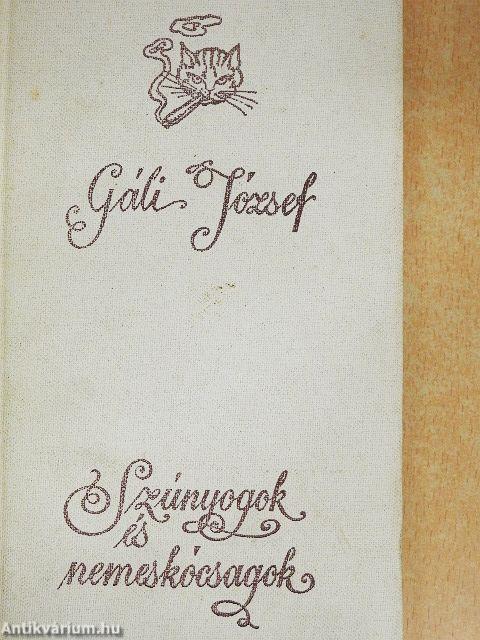 Gáli József
Szúnyogok
és
nemeskócsagok
Antikvárium.hu